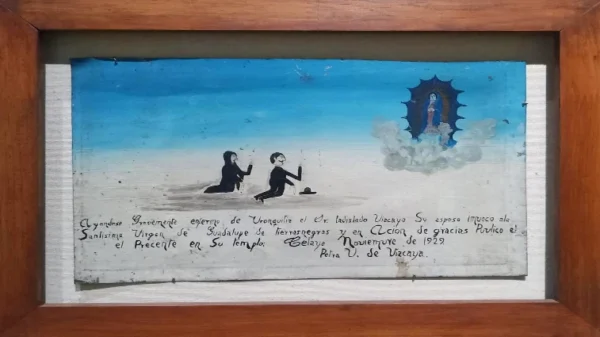 Ayandose Gravemente enfermo de Vronquitis el Sr. ladislado Vizcaya Su esposa imboco ala
Santisima Virgen de Guadalupe de tierrasnegras y en Acion de gracias Puvlico el
el Precente en Su templo. Celaya Noviembre de 1929.
Petra V. de Vizcaya.